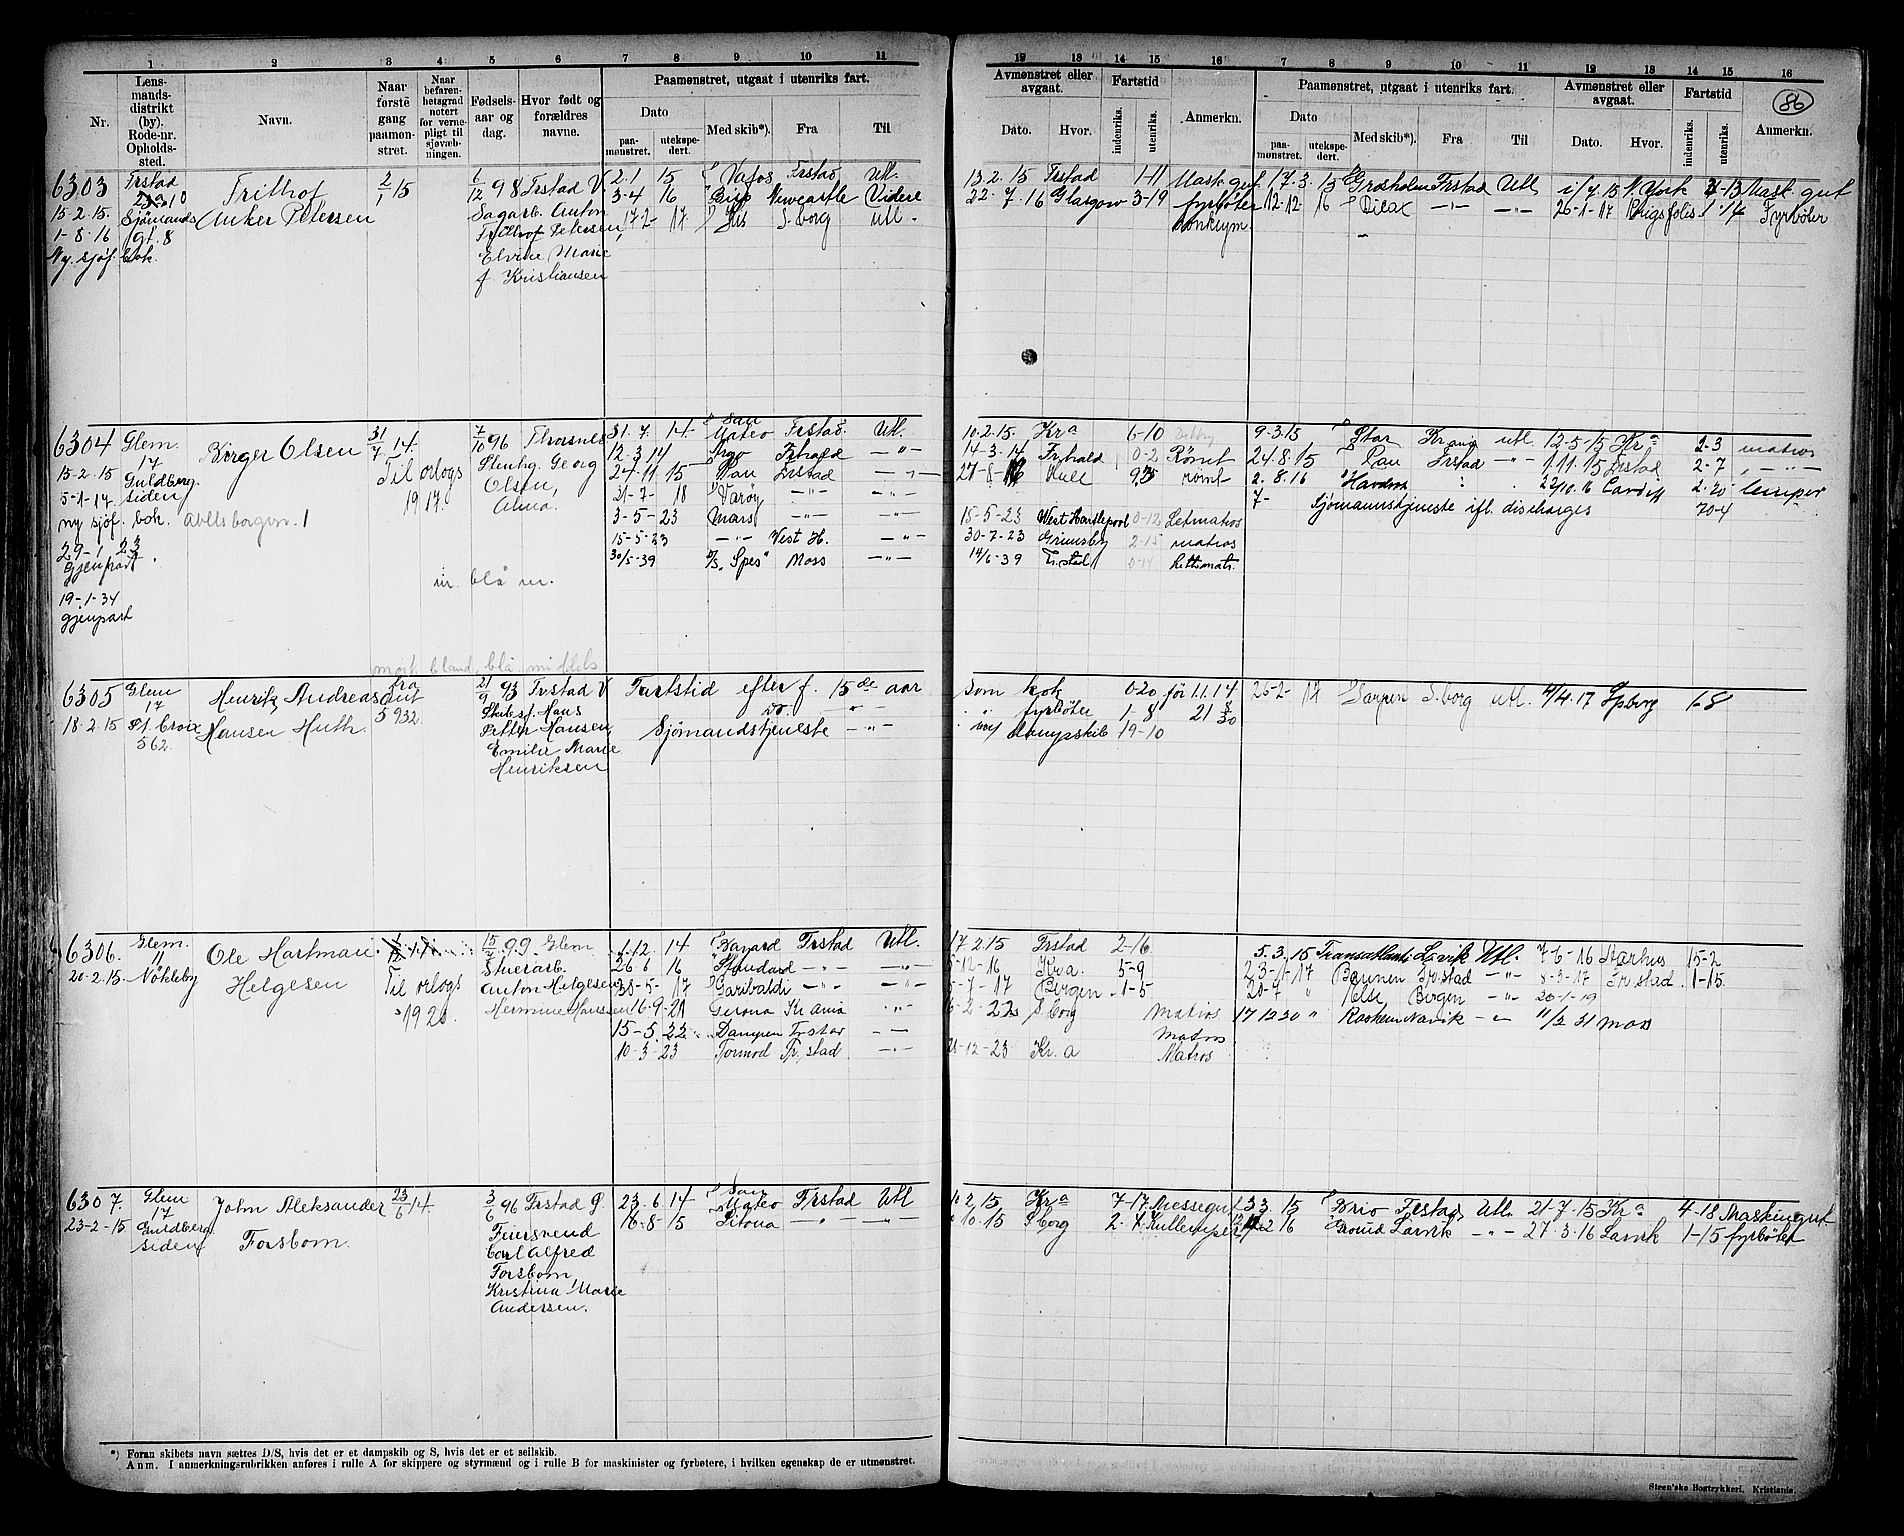 1 2 3 4 5 6 7 8 9 10 11
Nr.
Lens-
mands-
distrikt
(by).
Rode-nr.
Opholds-
sted.
Navn.
Naar
første
gang
paamøn-
stret.
Naar
befaren-
hetsgrad
notert
for verne-
pligt til
sjøvæb-
ningen.
Fødsels-
aar og
dag.
Hvor født og
forældres
navne.
Paamønstret, utgaat i utenriks fart.
Dato
paa-
mønstret.
utekspe-
dert.
Med skib*).
Fra
Til
12 13 14 15 16 7 8 9 10 11 12 13 14 15 16
Avmønstret eller
avgaat.
Dato.
Hvor.
Fartstid
indenriks.
utenriks.
Anmerkn.
Paamønstret, utgaat i utenriks fart.
Dato
paa-
mønstret.
utekspe-
dert.
Med skib*).
Fra
Til
Avmønstret eller
avgaat.
Dato.
Hvor.
Fartstid
indenriks.
utenriks.
86
Anmerkn.
6303 Frstad
15.2.15. Sjømands
1-8.16 gt. 8
Ny sjøf. bok.
Frithof
Anker Petersen
2/1 15
6/12 98 Frstad V
Sagarb. Anton
Frithof Petersen,
Elvine Marie
f. Kristiansen
2.1 15 Vafos Frstad Utl.
3-4 16 Newcastle Videre
17.2- 17 S.borg utl -
13.2.15 Frstad 1-11 Mask gut
22.7.16 Glasgow 3-19 fyrbøter
donkeym.
17.3. 15 Græsholm Frstad Utl
12.12. 16
7.15 N. York 13 Mask gut
26-1-17 1-14 Fyrbøter
6304 Glem.
17
15-2.15 Guldberg-
5-1-17. siden
ny sjøf. bok. Abelsborgen. 1
29-1 23
Gjenpart
19-1-34
gjenpart
Birger Olsen
31/7 14.
Til orlogs
1917.
m. blå m.
7/10 96 Thorsnes
Stenhg. Georg
Olsen,
Alma.
31.7. 14. San
Mateo Frstad. Utl.
12.3.14 Argo Frhald —"—
24-11 15 Pau Frstad —"—
31-7- 18 Varøy —"— —"—
3-5-23 Mars —"— —"—
15-5-23 —"— West H. —"—
30/5-39 D/S "Spes" Moss —"—
10.2.15. Kra 6-10
14-3-14 Frhald 0-2 Rømt
27-8 Hull rømt
15-5-23 West Hartlepool 0-12 Letmatros
30-7-23 Grimsby 2-15 matros
14/6-39 Fr.stad 0-14 Lettmatr.
9-3.15 Star Krania utl. 12-5-15 Kra 2-3 matros
24.8.15 Pau Frstad —"— 1.11.15 Frstad 2-7 —"—
2.8.16 22/10.16 Cardiff 2-20 lemper
7- Sjømannstjeneste ifl. discharges 70-4
mørk bland, blå middels
6305 Glem
17
18.2.15 St. Croix
562.
Henrik Andreas
Hansen Huth.
fra
5932.
21/9 93 Frstad V
Skibsf. Hans
Petter Hansen,
Emilie Marie
Henriksen
Fartstid efter f. 15 de aar
do. —"—
Sjømandstjeneste —"—
som kok 0-20 før 1.1.14
" fyrbøter 1-8 21 8/30
" dampskib 19-10
26-2- 17 Sarpen S.borg utl. 4/4.17 Spborg 1-8
6306. Glem.
11
20-2.15. Nøkleby
Ole Hartman
Helgesen
Til orlogs
1920.
15/7 99 Glem
Stuerarb.
Anton Helgesen
Hermine Hanssen
1.12. 14 Bavard Frstad Utl.
26 6 16 Standard —"— —"—
31-5- 17 Garibaldi —"— —"—
16-9-21 Gerona Krania —"—
15-5.22 Dampen Frstad
10-3-23 Tormod Fr.stad —"—
17.2.15 Frstad 2-16
5-12-16 Kra. 5-9
5-7-17 Bergen 1-5
6-2-22 S.borg Matros
Matros
28-12-23 Kr.a Matros
5.3.15 Transatlantic Larvik Utl. 7-6-16 Aarhus 15-2
23-1-17 Fr.stad —"— 8-3-17 Fr.stad. 1-15.
20-7 " Else Bergen —"— 20-1-19
17 12 30 " Narvik —"— 11/2 31 Moss
6307. Glem
17
23-2-15 Guldberg-
siden
John Aleksander
Forsbom.
23/6 14.
3/6 96 Frstad G.
Feiersvend
Carl Alfred
Forsbom
Kristina Marie
Andersen.
23.6 14- San
Mateo Frstad Utl
16-8-15 —"— —"—
10.2.15 Kra 7-17 Messegut
10.15 S.borg 2. Kullemper
3.3 15 Brio Frstad, Utl. 21-7.15 Kra 4-18 Maskingut
16 Larvik —"— 27 3.16 Larvik 1-15 fyrbøter
*) Foran skibets navn sættes D/S, hvis det er et dampskib og S, hvis det er et seilskib.
Anm. I anmerkningsrubrikken anføres i rulle A for skippere og styrmænd og i rulle B for maskinister og fyrbøtere, i hvilken egenskap de er utmønstret.
Steen'ske Bogtrykkeri. Kristiania.